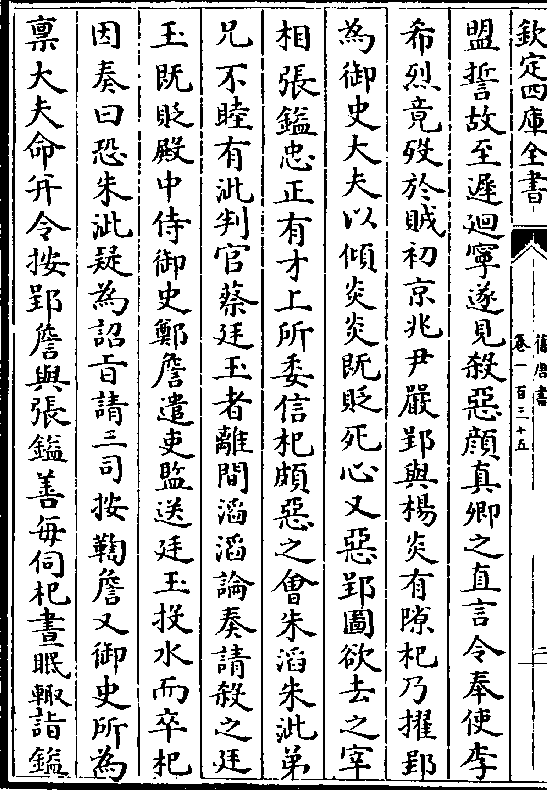 欽定四庫全書
舊唐書
卷一百三十五
二
盟誓故至遲廻寧遂見殺惡顔真卿之直言令奉使李
希烈竟殁於賊初京兆尹嚴郢與楊炎有隙杞乃擢郢
為御史大夫以傾炎炎既貶死心又惡郢圖欲去之宰
相張鎰忠正有才上所委信杞頗惡之會朱滔朱泚弟
兄不睦有泚判官蔡廷玉者離間滔滔論奏請殺之廷
玉既貶殿中侍御史鄭詹遣吏監送廷玉投水而卒杞
因奏曰恐朱泚疑為詔㫖請三司按鞫詹又御史所為
禀大夫命并令按郢詹與張鎰善每伺杞晝眠輙詣鎰